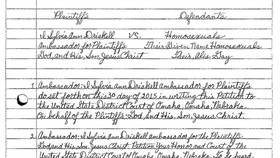 Plaintiffs Defendants
I Sylvia Ann Driskell VS. Homosexuals
Ambassador for Plaintiffs Their Given Name Homosexuals
God, and His, Son, Jesus Christ Their, Alis Gay
1. Ambassador: I Sylvia Ann Driskell Ambassador for Plaintiffs
do set forth on this 30 day of 2015 in writing this Petition to
the United State District Court of Omaha, Omaha, Nebraka.
On behalf of the Plaintiffs God, and His, Son, Jesus Christ.
2. Ambassador: I Sylvia Ann Driskell Ambassador for the Plaintiffs
God, and His, Son, Jesus Christ. Petition Your Honor, and Court of the
United State District Court of Omaha, Omaha, Nebraka. To be heard